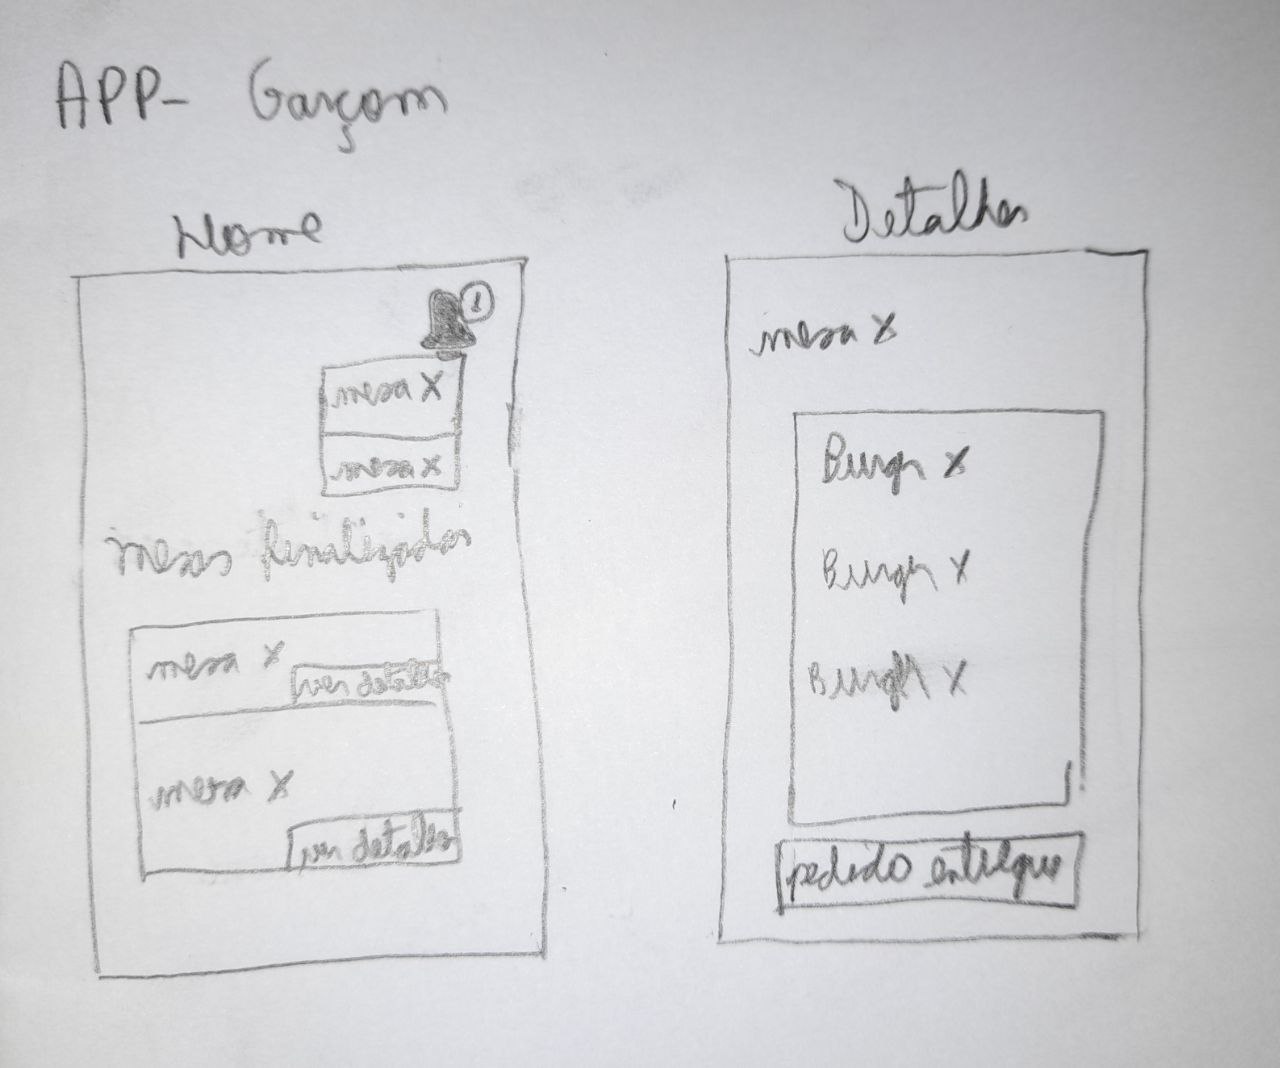 APP- Garçom
Home
1
mesa X
mesa X
mesas finalizadas
mesa X
ver detalhes
mesa X
ver detalhes
Detalhes
mesa X
Burger X
Burger X
Burger X
pedido entregue